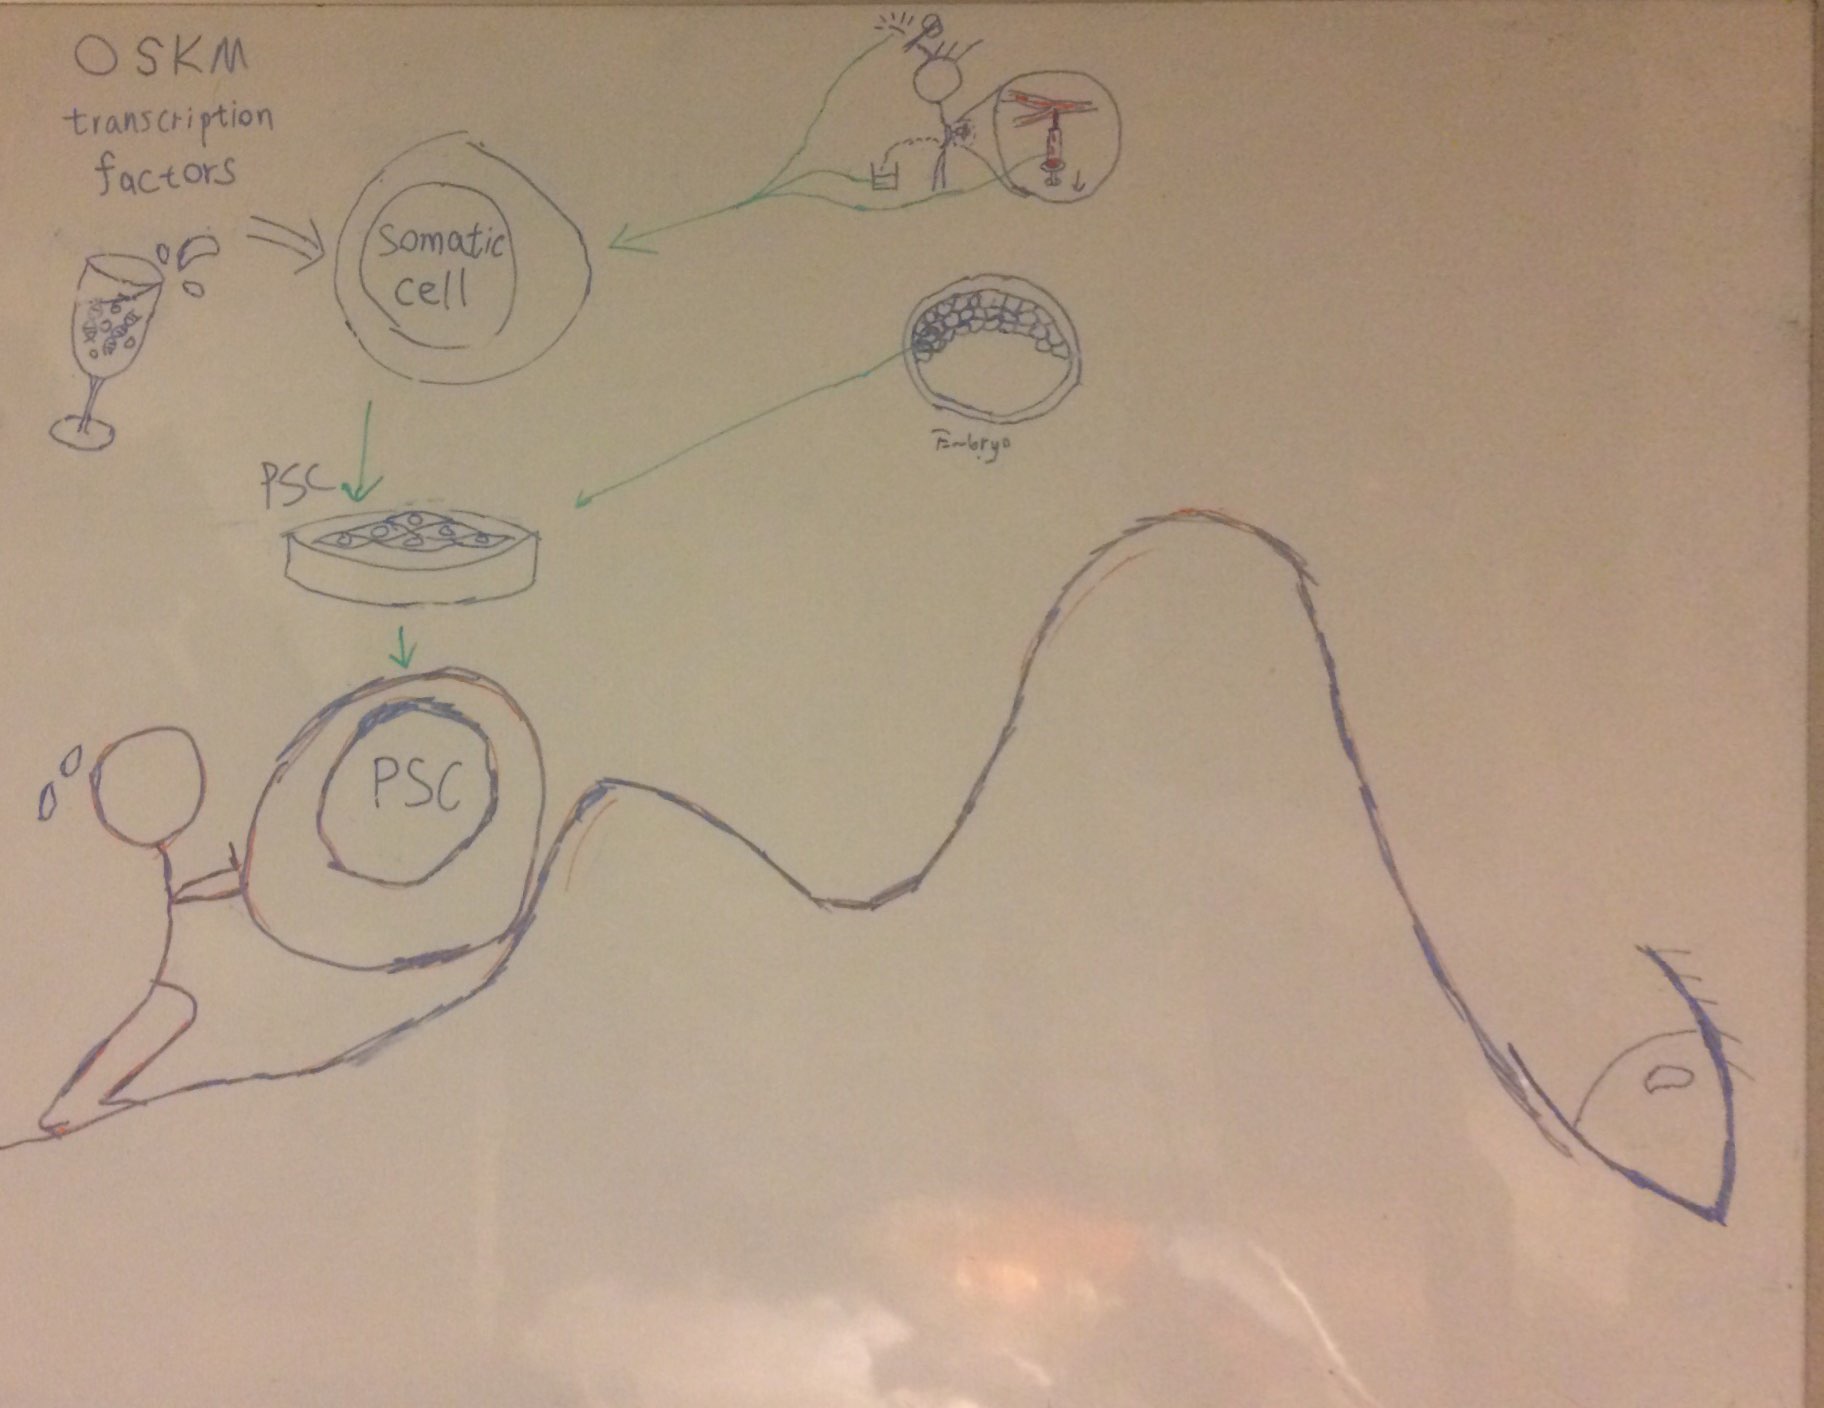 OSKM
transcription
factors
Somatic
cell
Embryo
PSC
PSC